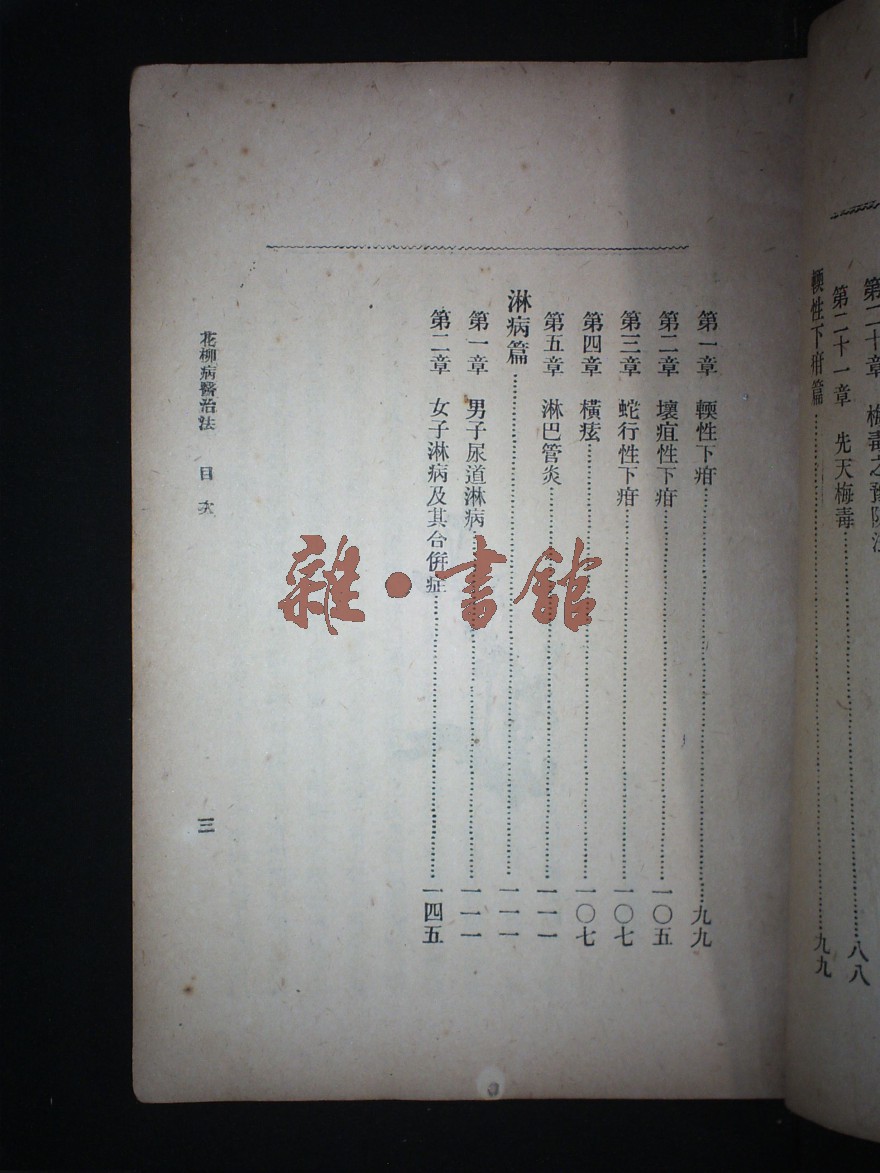 第二十章 梅毒之豫防法
第二十一章 先天梅毒……八八
輭性下疳篇……九九
第一章 輭性下疳……九九
第二章 壞疽性下疳……一〇五
第三章 蛇行性下疳……一〇七
第四章 橫痃……一〇七
第五章 淋巴管炎……一一一
淋病篇……一一一
第一章 男子尿道淋病……一一一
第二章 女子淋病及其合併症……一四五
花柳病醫治法 目次 三
雜·書館